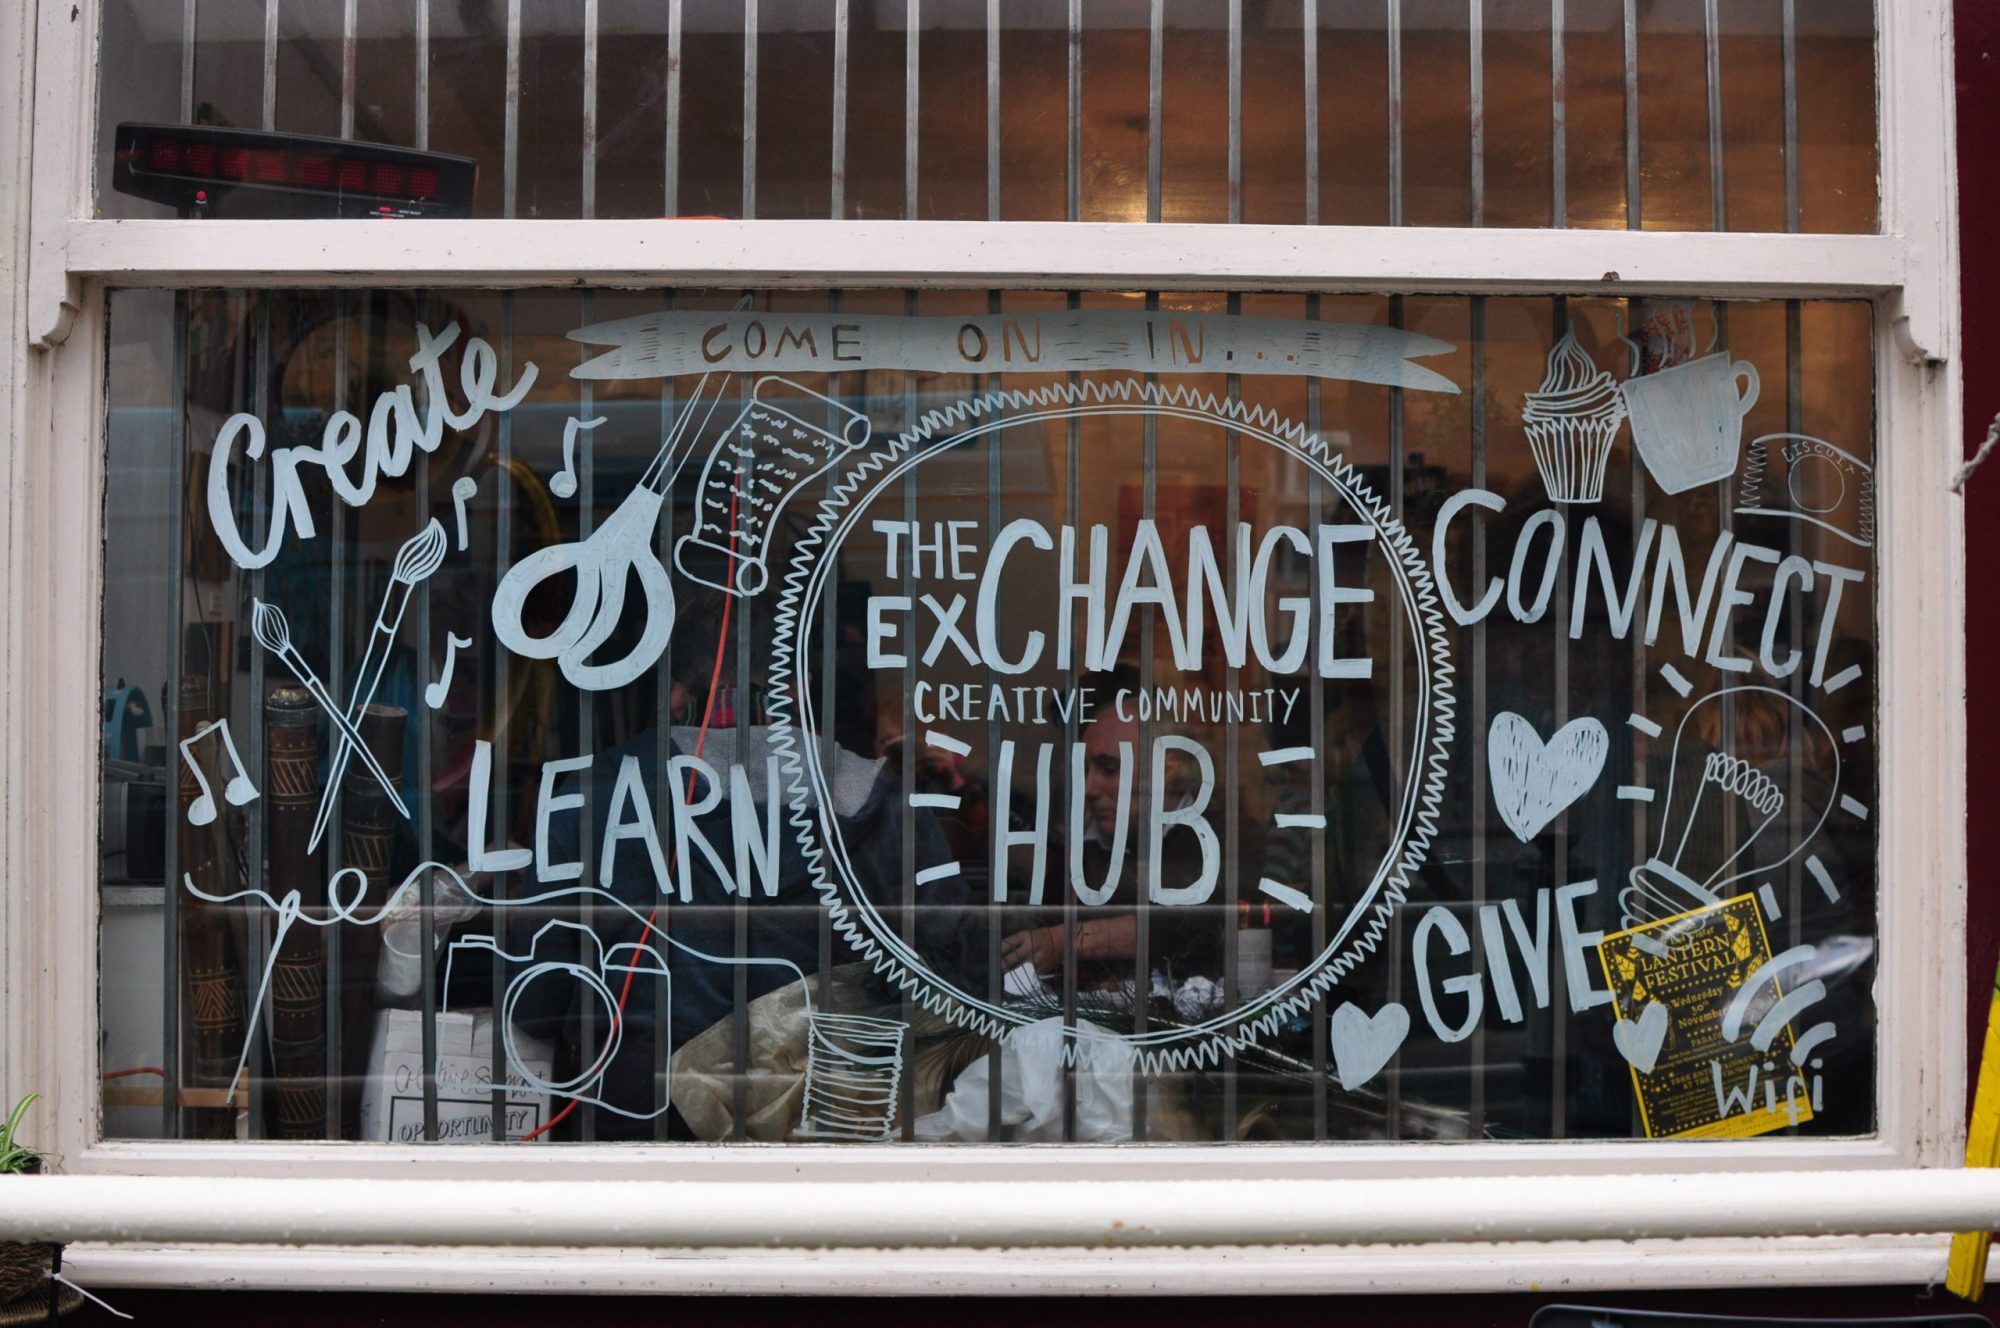 COME ON IN...
Create
LEARN
THE
EXCHANGE
CREATIVE COMMUNITY
HUB
BISCUIT
CONNECT
GIVE
LANTERN
FESTIVAL
Wednesday
November
PARADE
FREE ENTERTAINMENT
Wifi
OPPORTUNITY